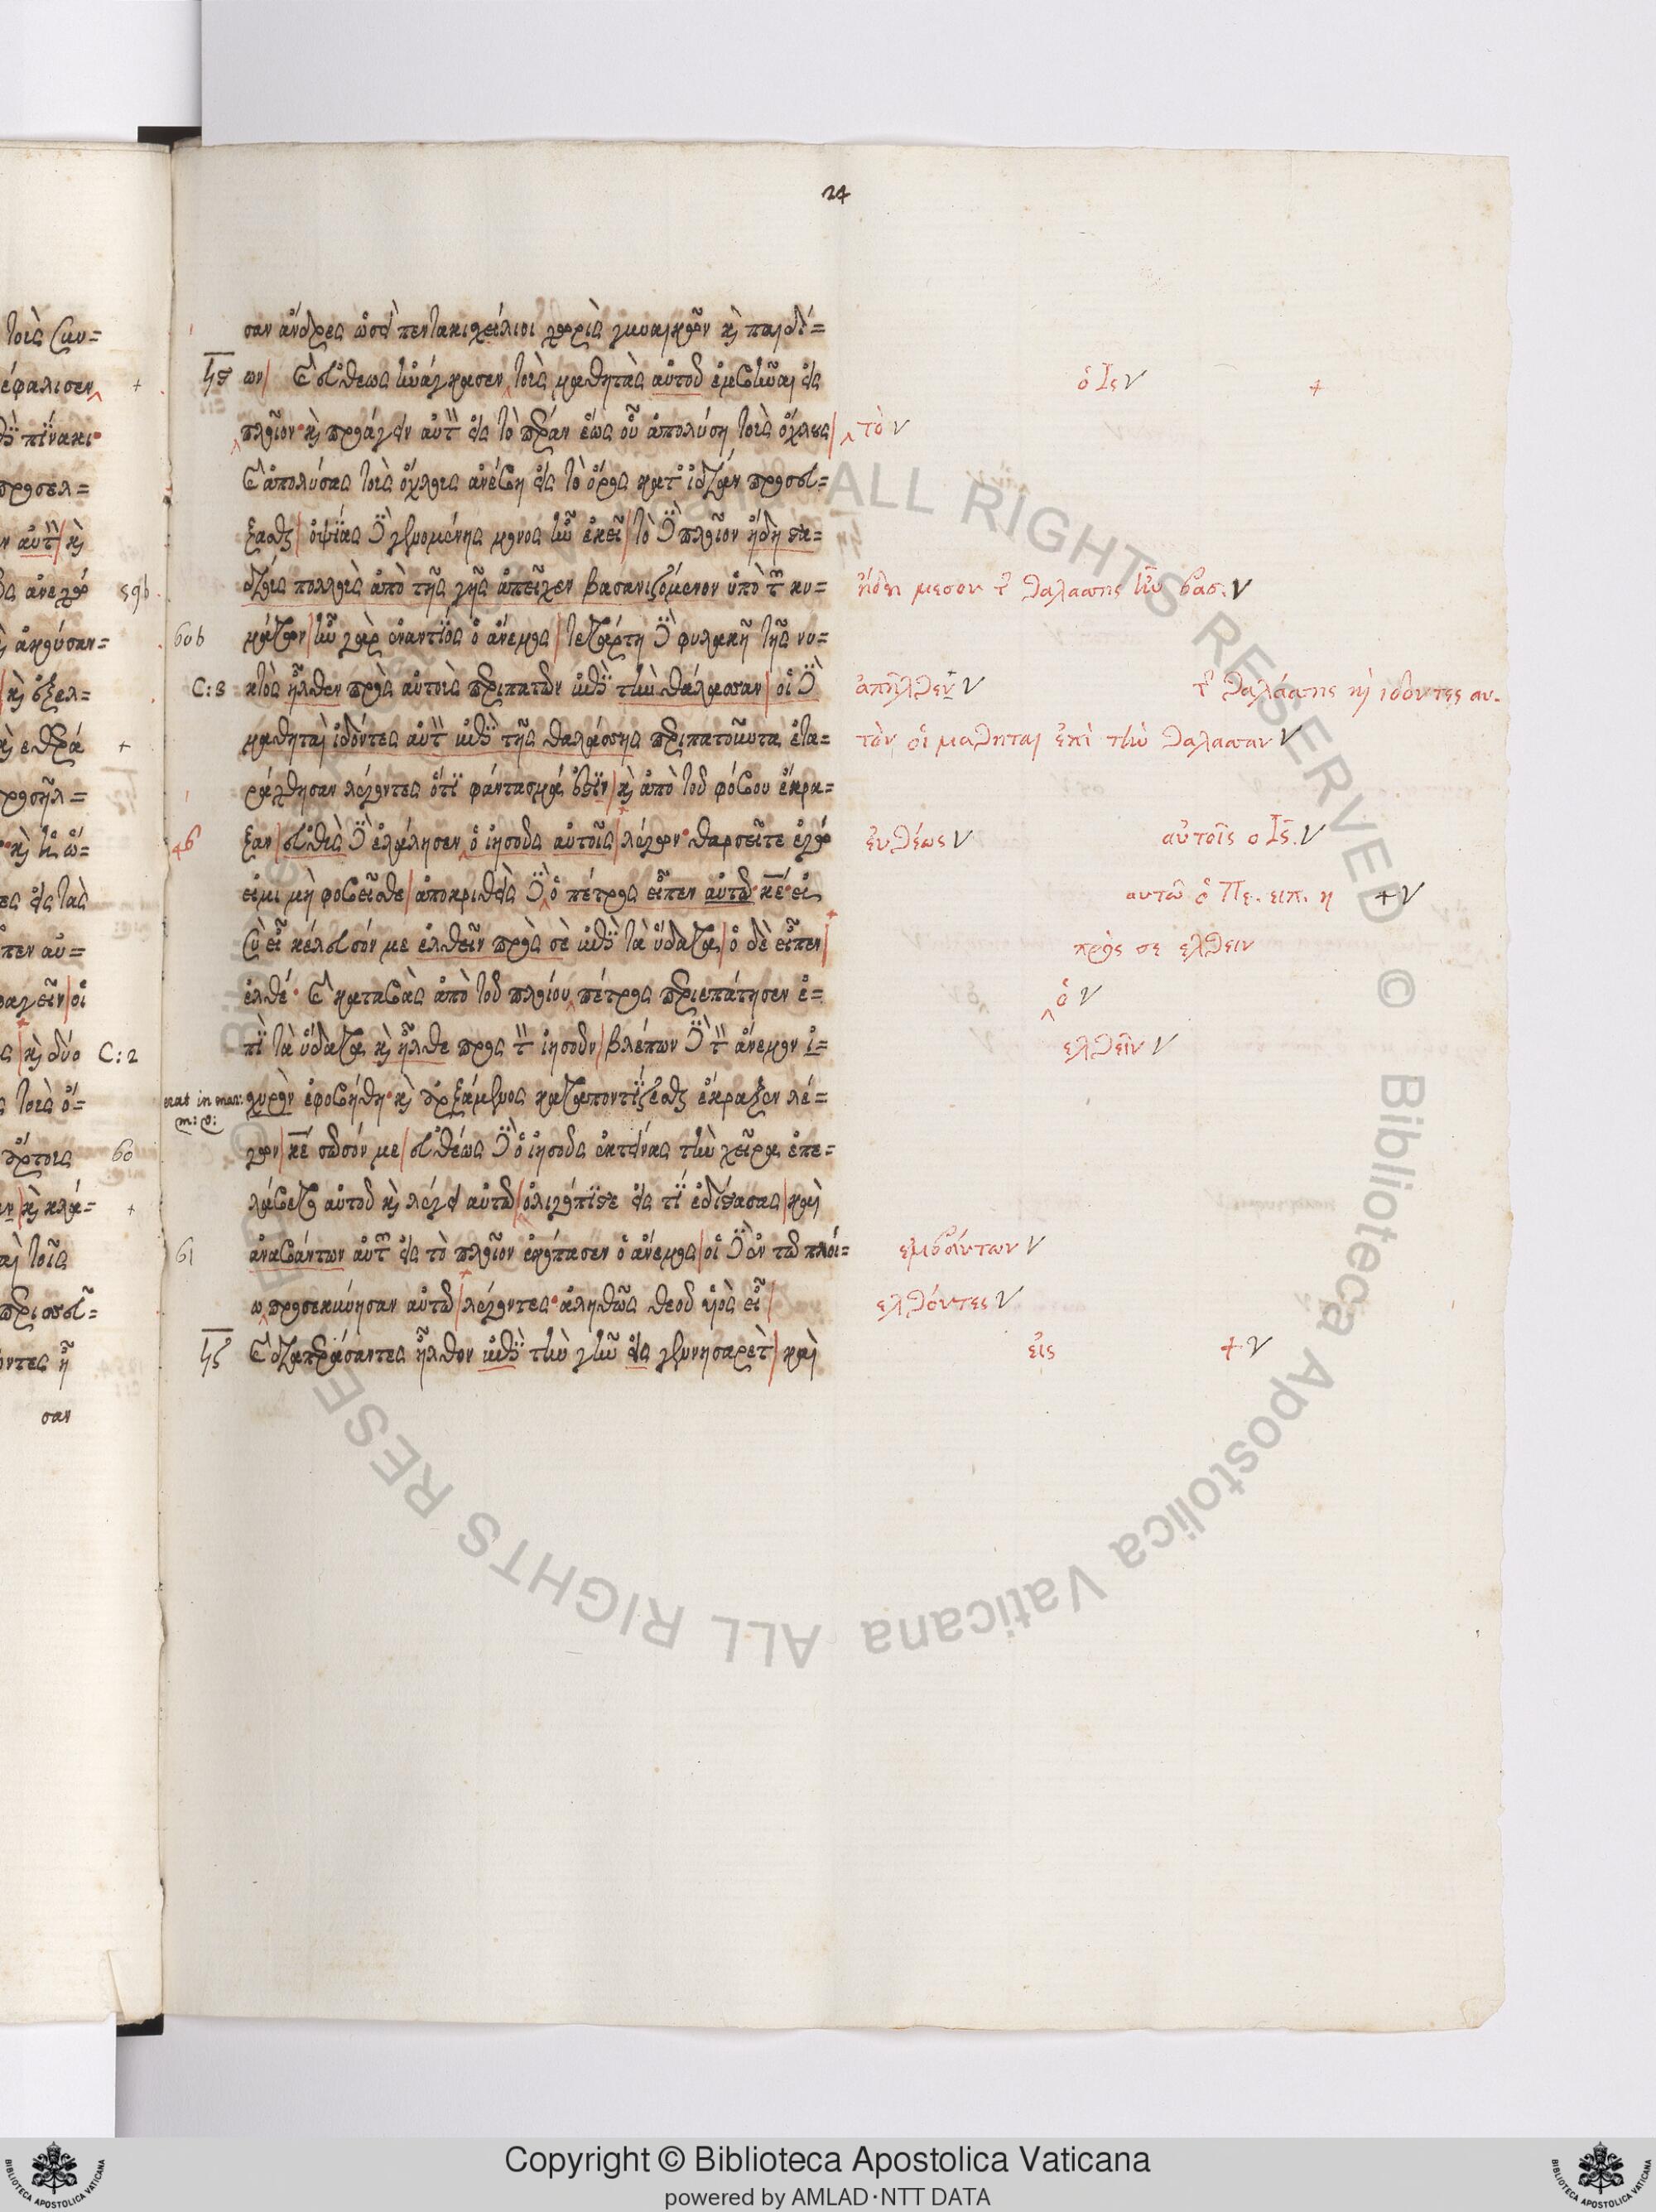 24
σαν ἄνδρες ὡσεὶ πεντακισχείλιοι χωρὶς γυναικῶν κ̀ παιδί=
ων| Καὶ εὐθέως ἠνάγκασεν τοὺς μαθητὰς αὐτοῦ ἐμβῆναι εἰς
ὁ Ις V +
πλοῖον· κ̀ προάγειν αὐτὸν εἰς τὸ πέραν ἕως οὗ ἀπολύση τοὺς ὄχλους|
τὸ V
Καὶ ἀπολύσας τοὺς ὄχλους ἀνέβη εἰς τὸ ὄρος κατ ἰδίαν προσευ=
ξασθαι| ὀψΐας δὲ γενομένης μόνος ἦν ἐκεῖ| τὸ δὲ πλοῖον ἤδη στα=
δίους πολλοὺς ἀπὸ τῆς γῆς ἀπεῖχεν βασανιζόμενον ὑπὸ τῶν κυ=
ἤδη μεσον τ θαλασσης ἦν βασ. V
60b
μάτων| ἦν γὰρ ἐναντΐος ὁ ἄνεμος| τετάρτη δὲ φυλακῆ τῆς νυ=
C: 3
κτὸς ἦλθεν πρὸς αὐτοὺς περιπατῶν ἐπὶ τὴν θάλασσαν| οἱ δὲ
ἀπῆλθεν V τ θαλάσσης κ̀ ιδοντες αυ-
μαθηταὶ ἰδόντες αὐτὸν ἐπὶ τῆς θαλάσσης περιπατοῦντα ἐτα=
τὸν οἱ μαθηται ἐπὶ τὴν θαλασσαν V
ράχθησαν λέγοντες ὅτΐ φάντασμά ἐστΐν| κ̀ ἀπὸ τοῦ φόβου ἔκρα=
ξαν| εὐθὺς δὲ ἐλάλησεν ὁ ἰησοῦς αὐτοῖς| λέγων· θαρσεῖτε ἐγώ
ἐυθέως V αὐτοῖς ο Ις. V
εἰμι μὴ φοβεῖσθε| ἀποκριθεὶς δὲ ὁ πέτρος εἶπεν αὐτῶ· κε· εἰ
αυτῶ ὁ Πε. ειπ. η +V
σὺ εἶ κέλευσόν με ἐλθεῖν πρὸς σὲ ἐπὶ τὰ ὕδατα| ὁ δὲ εἶπεν|
πρὸς σε ελθειν
ἐλθέ· Καὶ καταβὰς ἀπὸ τοῦ πλοίου πέτρος περιεπάτησεν ἐ=
ὁ V
πΐ τὰ ὕδατα κ̀ ἦλθε προς τὸν ἰησοῦν| βλέπων δὲ τὸν ἄνεμον ἰ=
ελθεῖν V
erat in mar:
m: v:
χυρὸν ἐφοβήθη· κ̀ ἀρξάμενος καταποντΐζεσθαι ἔκραξεν λέ=
γων| κε σῶσόν με| εὐθέως δὲ ὁ ἰησοῦς ἐκτείνας τὴν χεῖρα ἐπε=
λάβετο αὐτοῦ κ̀ λέγει αὐτῶ| ὀλιγόπΐστε εἰς τΐ ἐδίστασας| καὶ
61
ἀναβάντων αὐτῶν εἰς τὸ πλοῖον ἐκόπασεν ὁ ἄνεμος| οἱ δὲ ἐν τῶ πλοί=
εμβάντων V
ω προσεκύνησαν αὐτῶ| λέγοντες· ἀληθῶς θεοῦ υἱὸς εἶ|
ελθόντες V
Καὶ διαπεράσαντες ἦλθον ἐπὶ τὴν γῆν εἰς γεννησαρέτ| καὶ
εἰς +V
C: 2
60
σαν
Copyright © Biblioteca Apostolica Vaticana
powered by AMLAD·NTT DATA